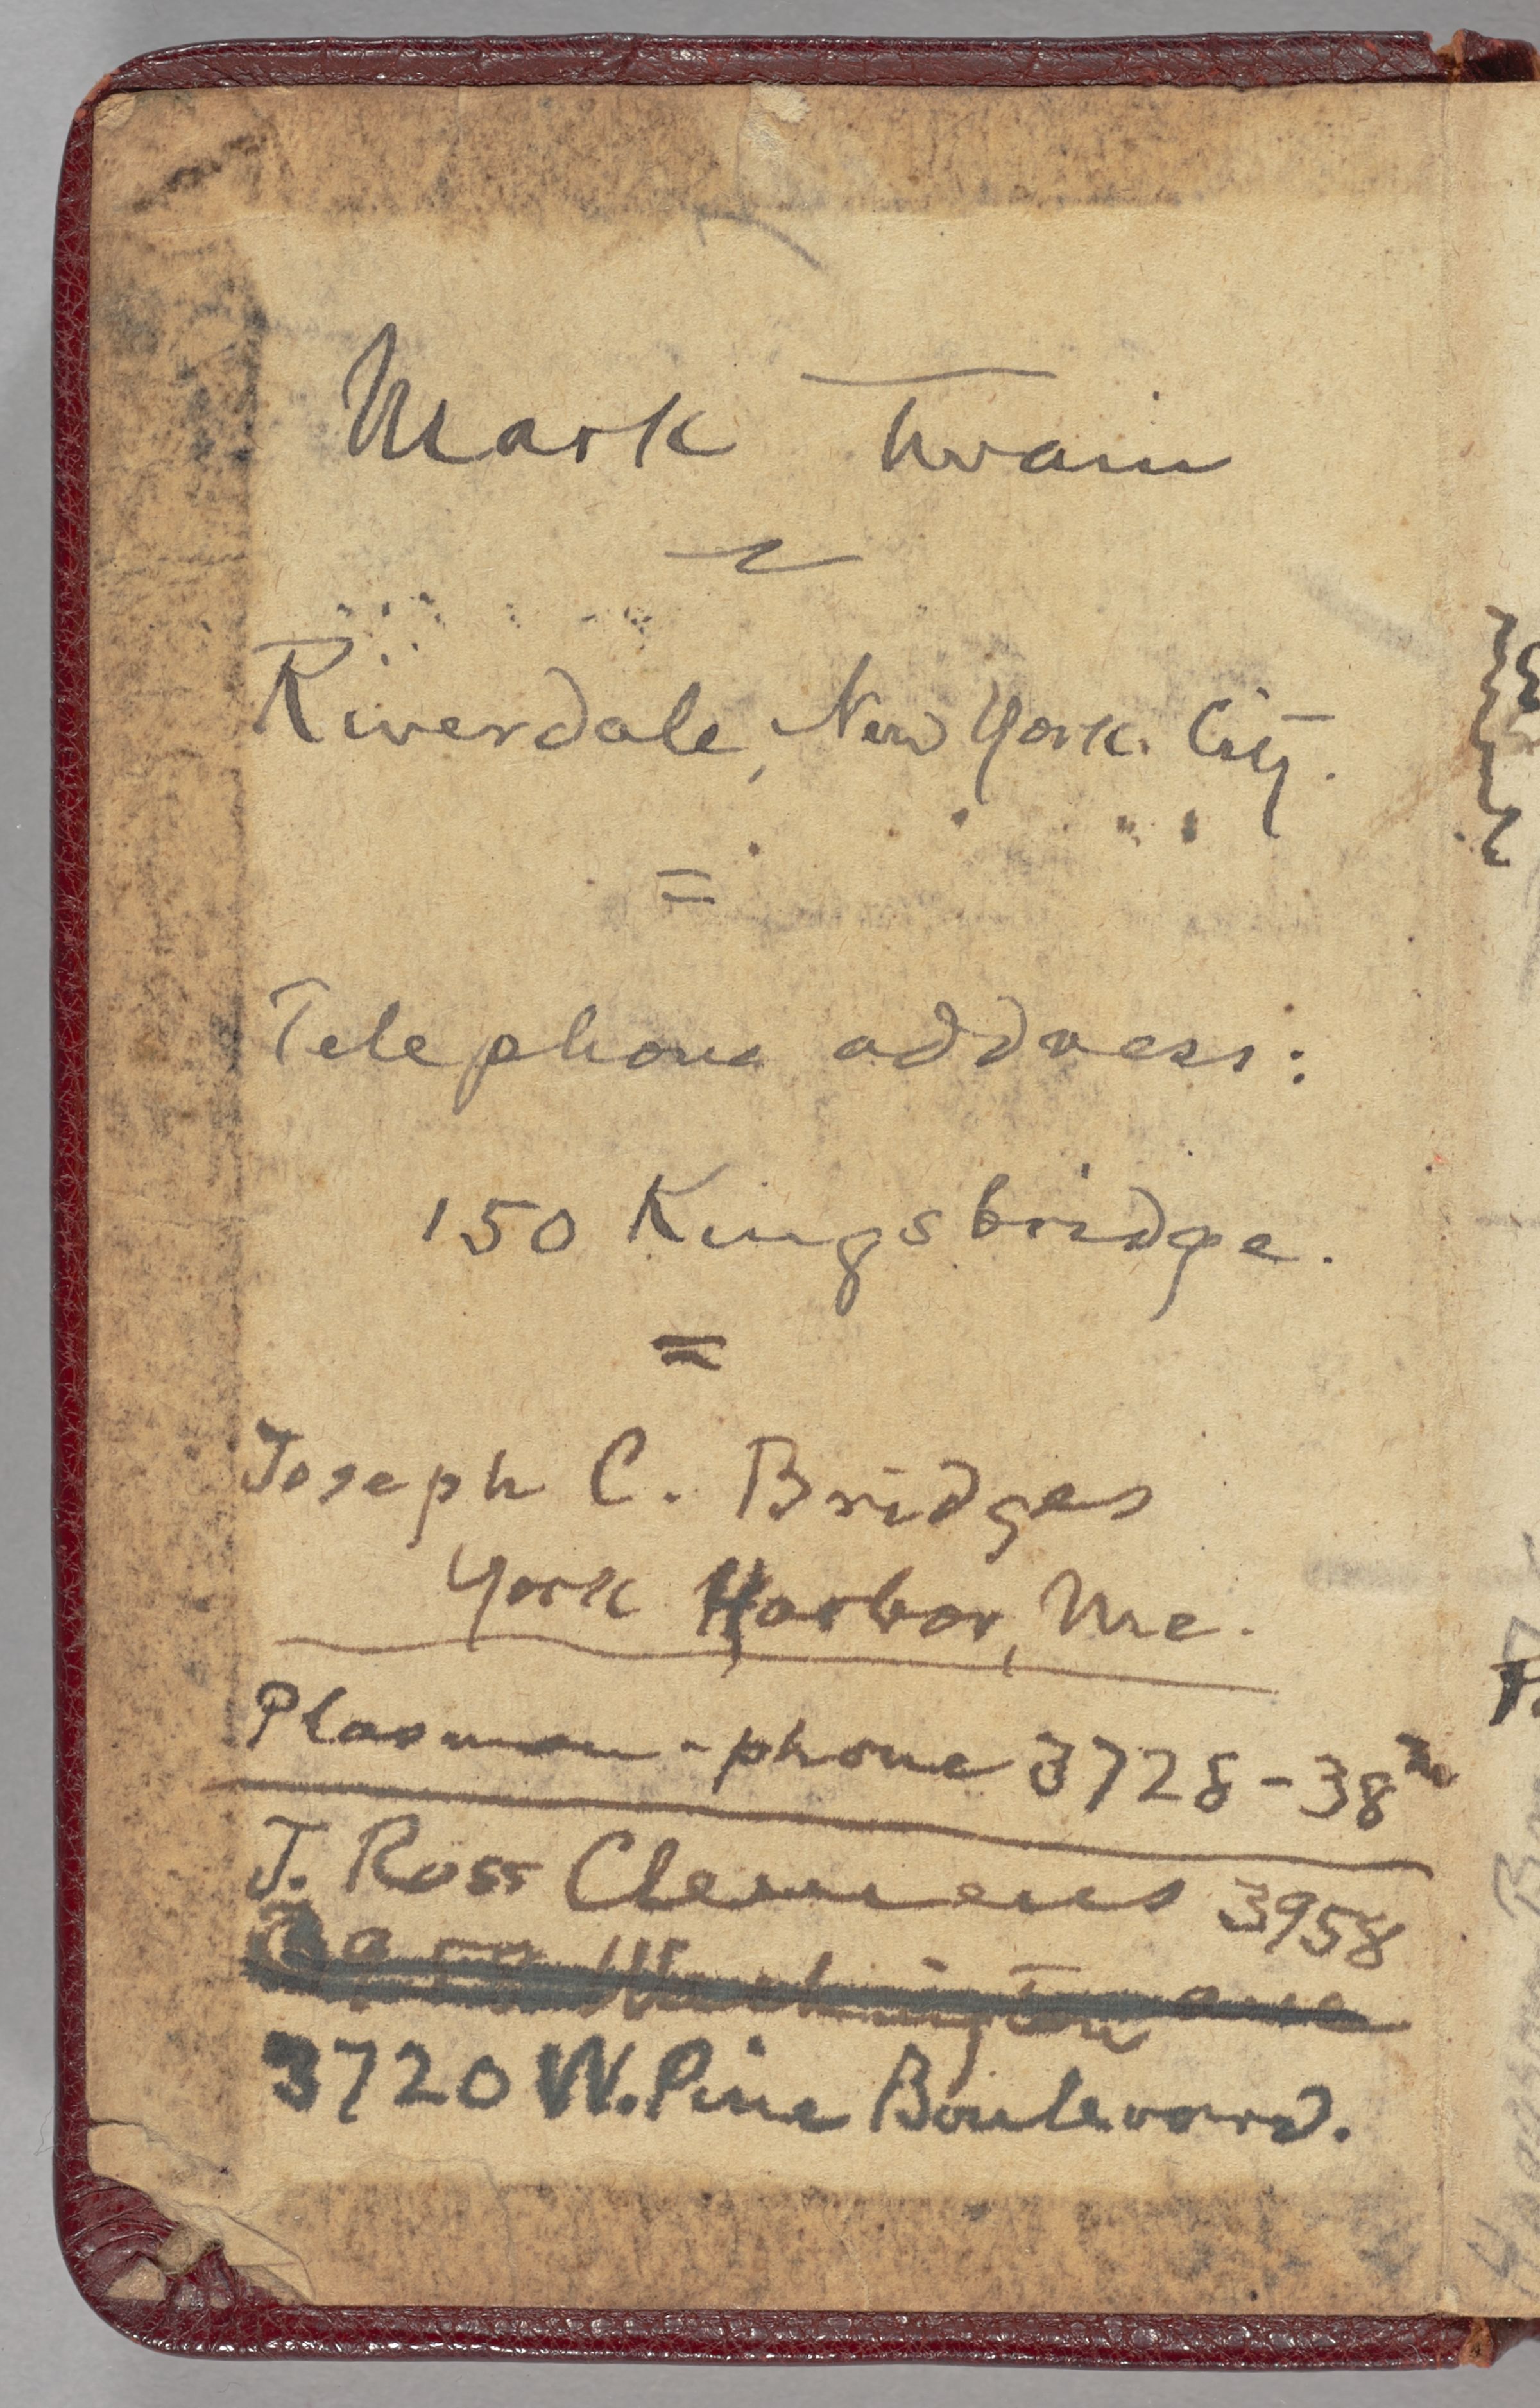 Mark Twain
Riverdale, New York City.
=
Telephone address:
150 Kingsbridge.
=
Joseph C. Bridges
York Harbor, Me.
Plasmon-phone 3728-38th
J. Ross Clemens 3958
3958 Washington ave
3720 W. Pine Boulevard.